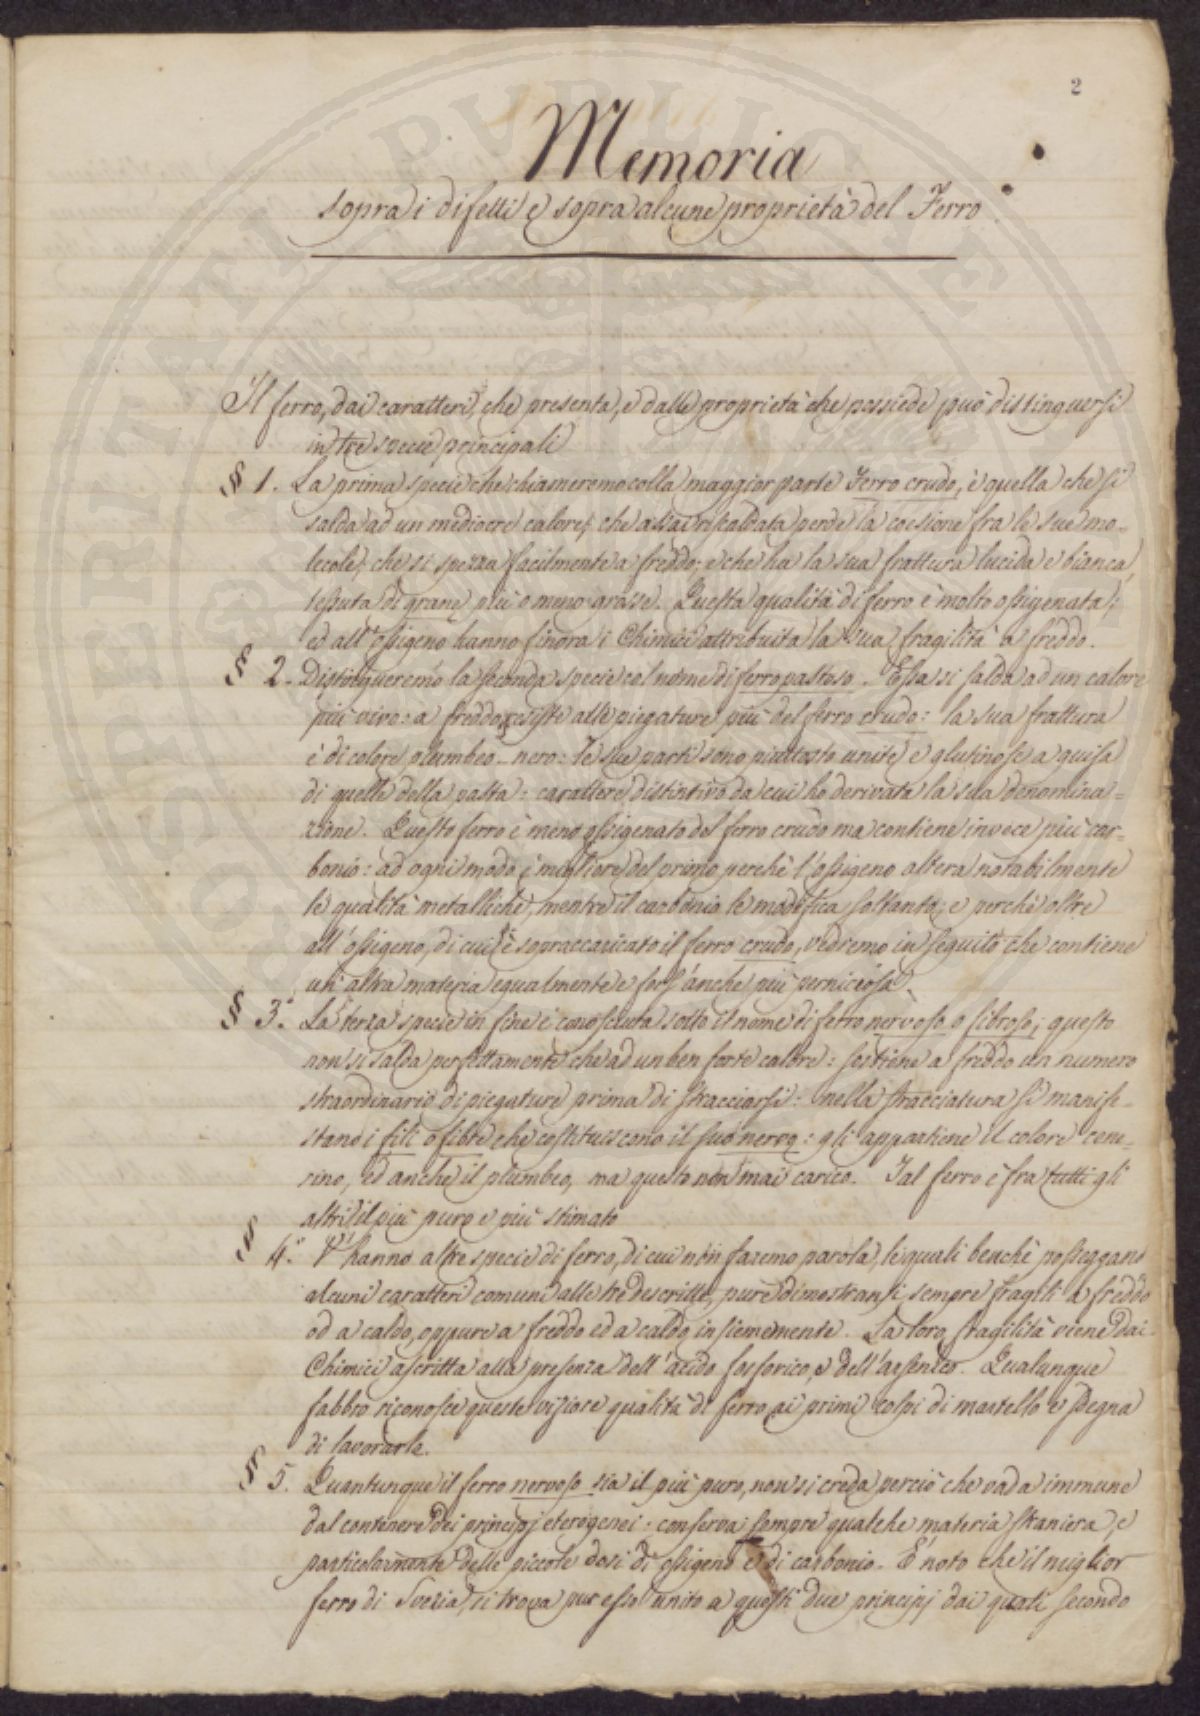 2
Memoria
sopra i difetti e sopra alcune proprietà del Ferro
Il ferro, dai caratteri, che presenta, e dalle proprietà che possiede può distinguersi
in tre specie principali
§ 1. La prima specie che chiameremo colla maggior parte Ferro crudo, è quella che si
salda ad un mediocre calore; che assai riscaldata perde la coesione fra le sue mo-
lecole; che si spezza facilmente a freddo; e che ha la sua frattura lucida e bianca,
tessuta di grane più o meno grosse. Questa qualità di ferro è molto ossigenata;
ed all'ossigeno hanno finora i Chimici attribuita la sua fragilità a freddo.
§ 2. Distingueremo la seconda specie col nome di ferro pastoso. Essa si salda ad un calore
più vivo: a freddo resiste alle piegature più del ferro crudo: la sua frattura
è di colore plumbeo-nero: le sue parti sono piuttosto unite e glutinose a guisa
di quelle della pasta: carattere distintivo da cui ho derivata la sua denomina=
zione. Questo ferro è meno ossigenato del ferro crudo ma contiene invece più car-
bonio: ad ogni modo è migliore del primo perchè l'ossigeno altera notabilmente
le qualità metalliche, mentre il carbonio le modifica soltanto; e perchè oltre
all'ossigeno, di cui è sopraccaricato il ferro crudo, vedremo in seguito che contiene
un'altra materia egualmente e fors'anche più perniciosa.
§ 3.° La terza specie in fine è conosciuta sotto il nome di ferro nervoso o fibroso; questo
non si salda perfettamente che ad un ben forte calore: sostiene a freddo un numero
straordinario di piegature prima di stracciarsi: nella stracciatura si manife-
stano i fili o fibre che costituiscono il suo nervo: gli appartiene il colore cene-
rino, ed anche il plumbeo, ma questo non mai carico. Tal ferro è fra tutti gli
altri il più puro e più stimato
§ 4.° V'hanno altre specie di ferro, di cui non faremo parola, le quali benchè posseggano
alcuni caratteri comuni alle tre descritte, pure dimostransi sempre fragili a freddo
od a caldo, oppure a freddo ed a caldo insiememente. La loro fragilità viene dai
Chimici ascritta alla presenza dell'acido fosforico, e dell'arsenico. Qualunque
fabbro riconosce queste viziose qualità di ferro ai primi colpi di martello e sdegna
di lavorarle.
§ 5. Quantunque il ferro nervoso sia il più puro, non si creda perciò che vada immune
dal contenere dei principj eterogenei: conserva sempre qualche materia straniera, e
particolarmente delle piccole dosi di ossigeno e di carbonio. È noto che il miglior
ferro di Svezia, si trova pur esso unito a questi due principj dai quali secondo